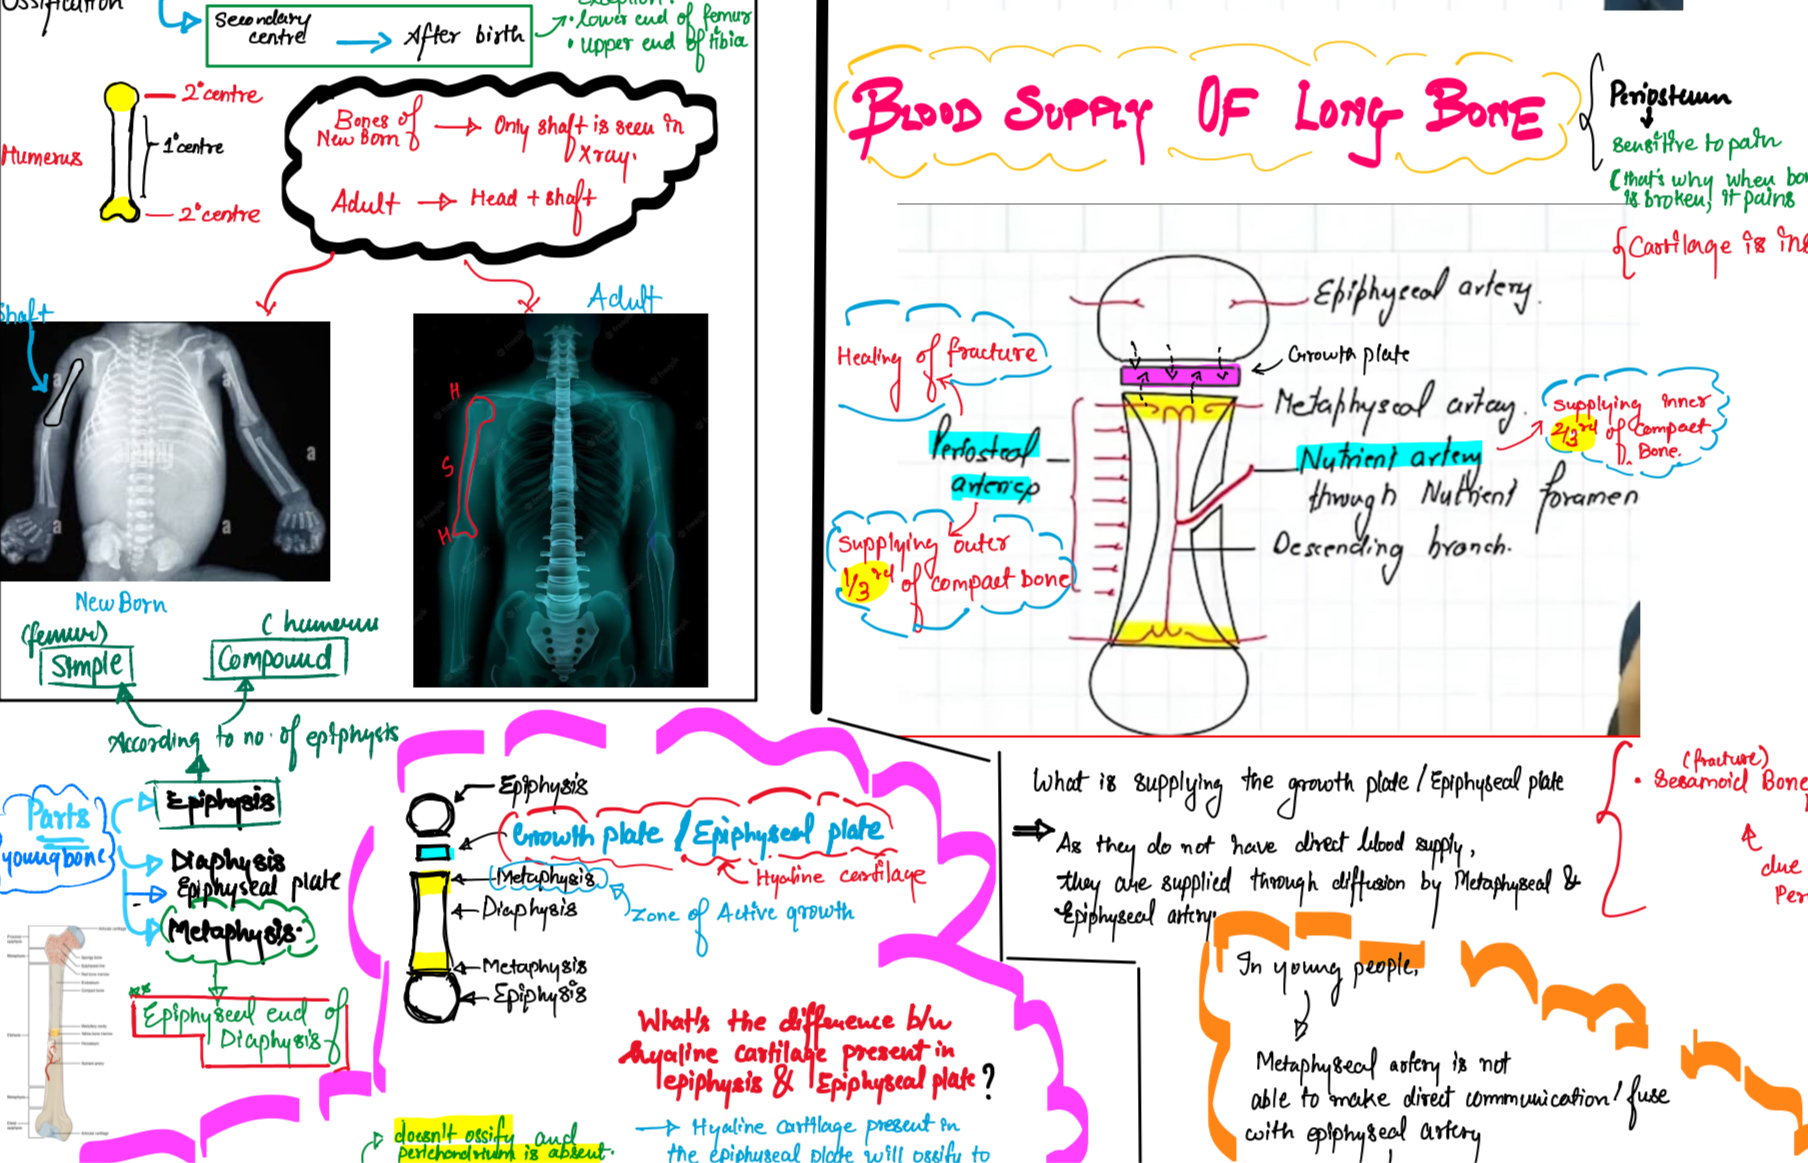 Ossification
Secondary centre → After birth
Exception:
• lower end of femur
• upper end of tibia
2° centre
1° centre
Humerus
2° centre
Bones of New Born → Only shaft is seen in Xray.
Adult → Head + shaft
Shaft
Adult
H
S
H
a
a
a
a
New Born
(femur)
Simple
( humerus
Compound
According to no. of epiphysis
Parts
young bone
Epiphysis
Diaphysis
Epiphyseal plate
Metaphysis.
Epiphyseal end of
Diaphysis
Epiphysis
Growth plate / Epiphyseal plate
Hyaline cartilage
Metaphysis
Zone of Active growth
Diaphysis
Metaphysis
Epiphysis
What's the difference b/w
hyaline cartilage present in
epiphysis & Epiphyseal plate?
doesn't ossify and
perichondrium is absent.
→ Hyaline cartilage present in
the epiphyseal plate will ossify to
BLOOD SUPPLY OF LONG BONE
Periosteum
sensitive to pain
(that's why when bo
is broken, it pains
{Cartilage is ins
Epiphyseal artery.
Growth plate
Healing of fracture
Metaphyseal artay.
supplying inner
2/3rd of compact
Bone.
Periosteal
arteries
Nutrient artery
through Nutrient foramen
Descending branch.
Supplying outer
1/3rd of compact bone
What is supplying the growth plate / Epiphyseal plate
⇒ As they do not have direct blood supply,
they are supplied through diffusion by Metaphyseal &
Epiphyseal artery.
(fracture)
• Sesamoid Bone
due
Per
In young people,
Metaphyseal artery is not
able to make direct communication / fuse
with epiphyseal artery